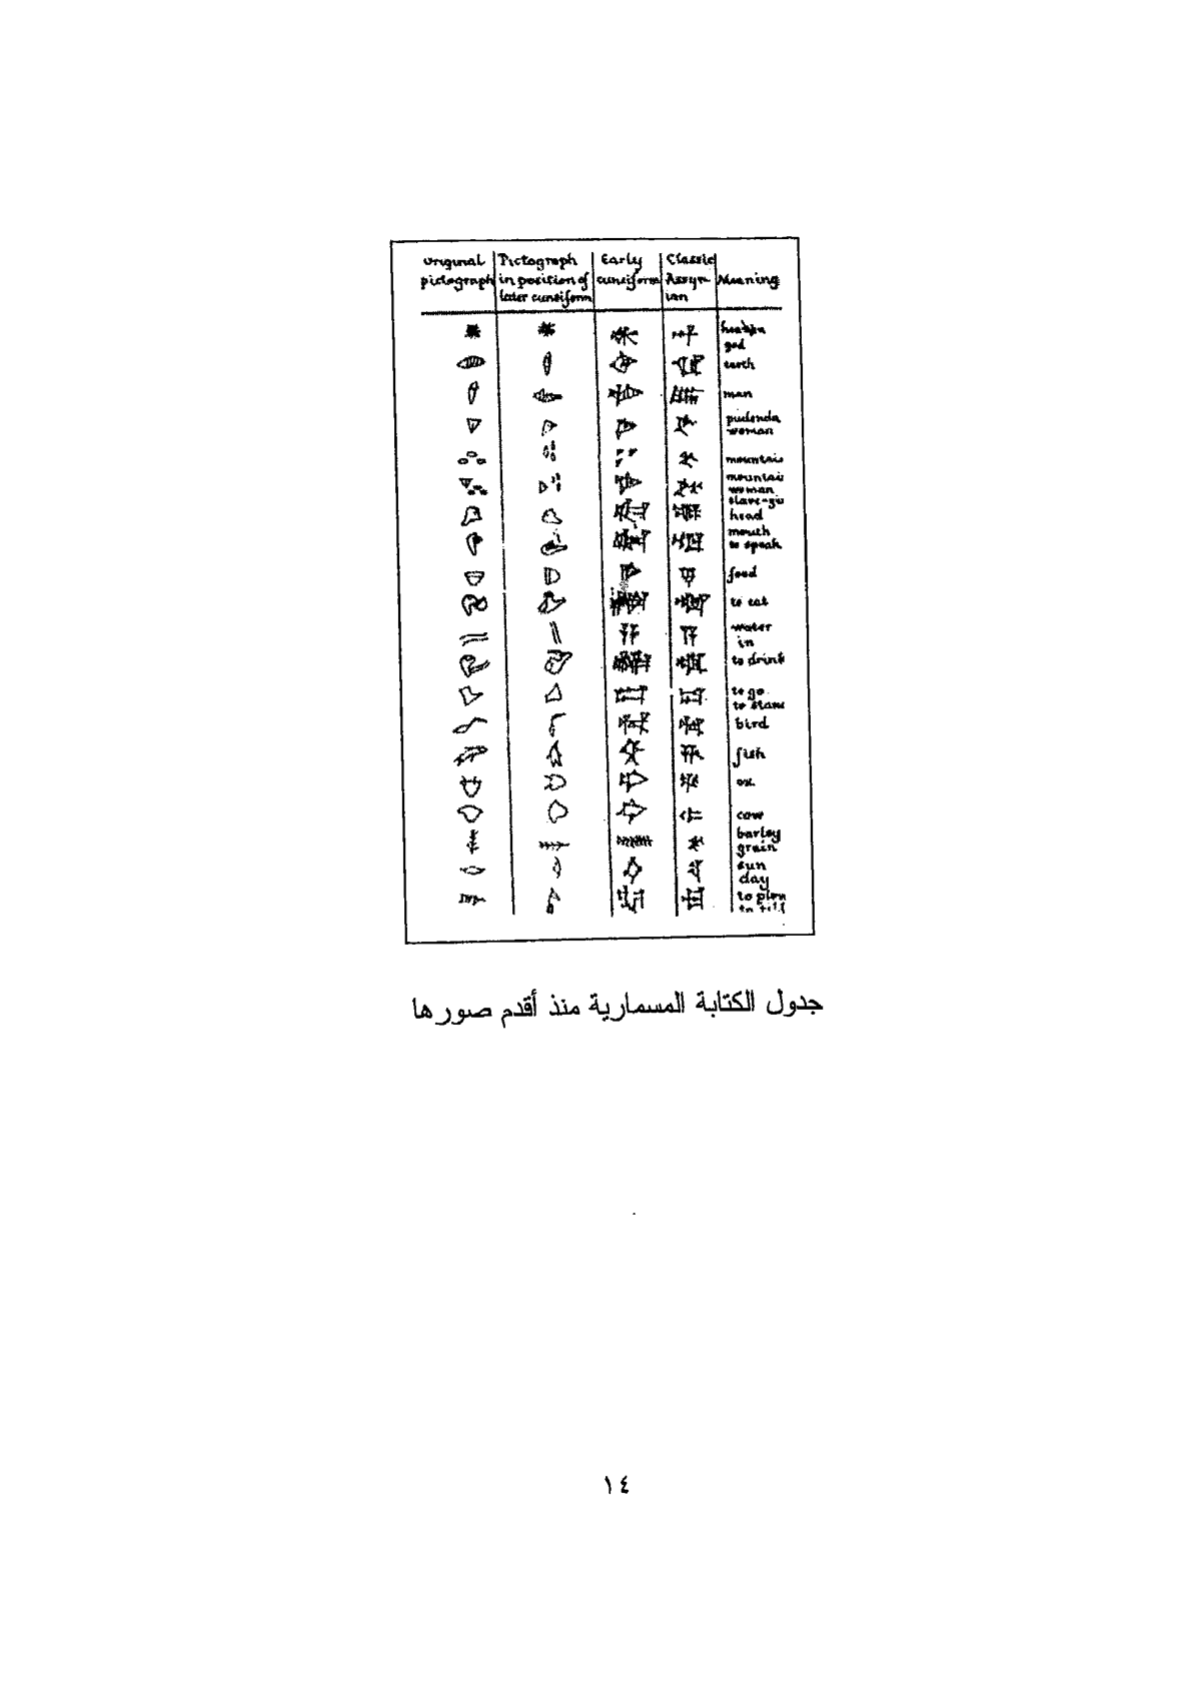 Original pictograph
Pictograph in position of later cuneiform
Early cuneiform
Classic Assyrian
Meaning
heaven
god
earth
man
pudenda
woman
mountain
mountai
woman
slave-gi
head
mouth
to speak
food
to eat
water
in
to drink
to go
to stand
bird
fish
ox
cow
barley
grain
sun
day
to plow
to till
جدول الكتابة المسمارية منذ أقدم صورها
١٤